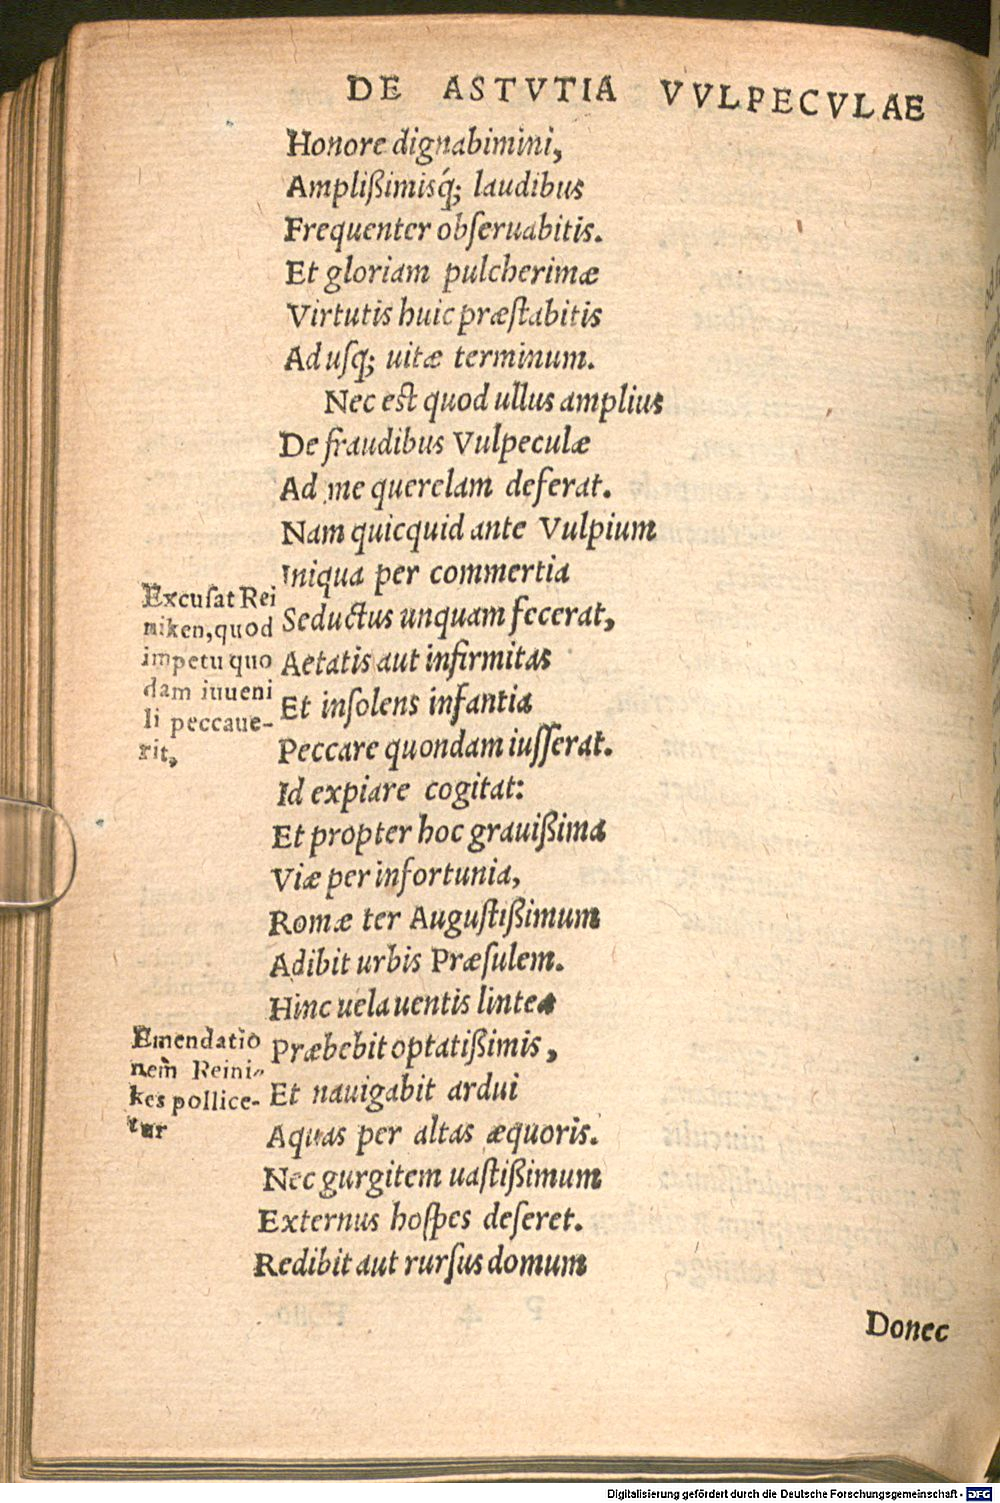 DE ASTVTIA VVLPECVLAE
Honore dignabimini,
Amplißimisq́; laudibus
Frequenter obſeruabitis.
Et gloriam pulcherimæ
Virtutis huic præſtabitis
Ad uſq; uitæ terminum.
Nec est quod ullus amplius
De fraudibus Vulpeculæ
Ad me querelam deferat.
Nam quicquid ante Vulpium
Iniqua per commertia
Seductus unquam fecerat,
Aetatis aut infirmitas
Et inſolens infantia
Peccare quondam iuſſerat.
Id expiare cogitat:
Et propter hoc grauißima
Viæ per infortunia,
Romæ ter Auguſtißimum
Adibit urbis Præſulem.
Hinc uela uentis lintea
Præbebit optatißimis,
Et nauigabit ardui
Aquas per altas æquoris.
Nec gurgitem uaſtißimum
Externus hoſpes deſeret.
Redibit aut rurſus domum
Donec
Excuſat Rei
niken, quod
impetu quo
dam iuueni
li peccaue-
rit,
Emendatio
nem̃ Reini-
kes pollice-
tur
Digitalisierung gefördert durch die Deutsche Forschungsgemeinschaft - DFG